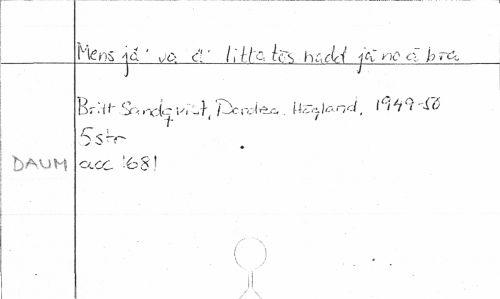 Mens jä va å litta tös hadd jä no å bra
Britt Sandqvist, Dordea. Högland, 1949-50
5 str
DAUM acc 1681